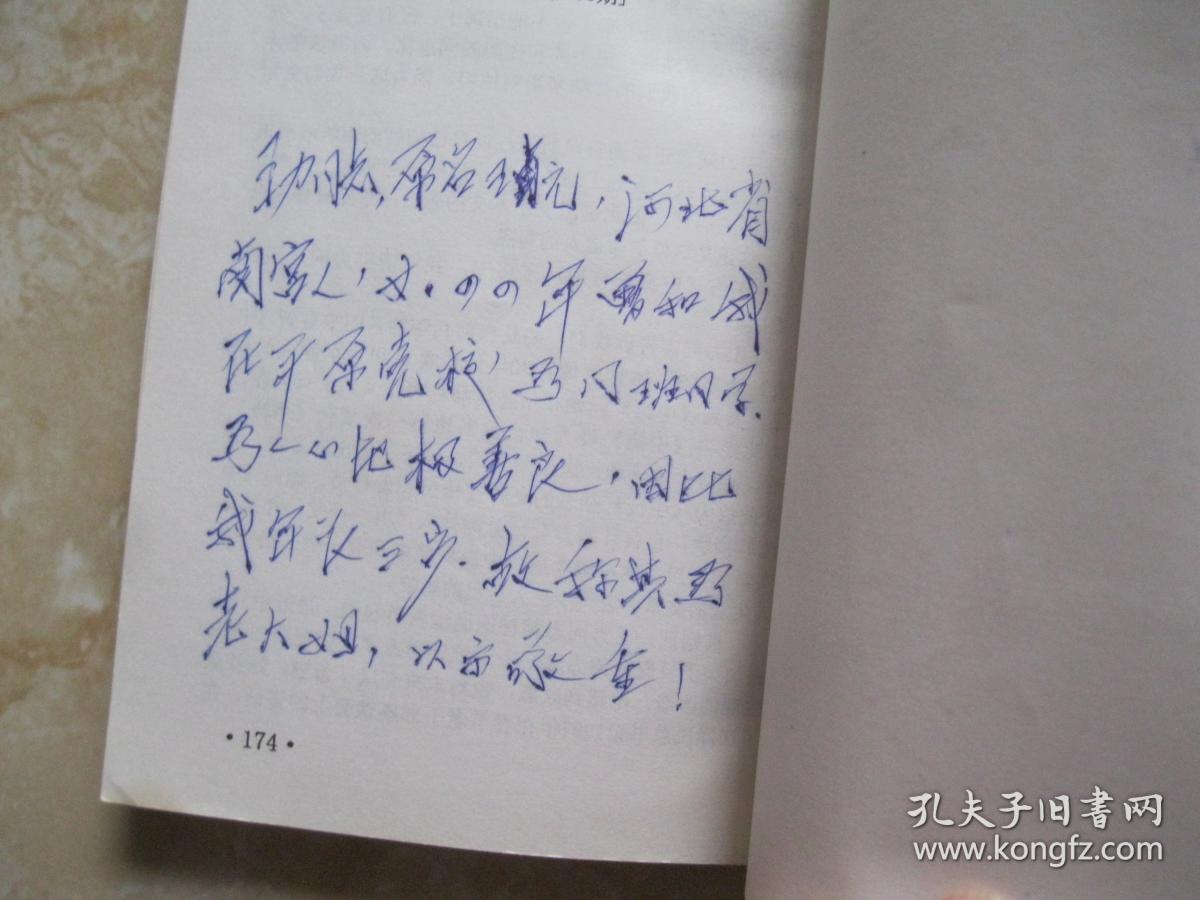 期」
原名,河北省
南宫人,女.四〇年曾和我
在平原党校,为同班同学.
为人心地极善良.因比
我年长三岁.故称其为
老大姐,以示敬重!
·174·
孔夫子旧书网
www.kongfz.com